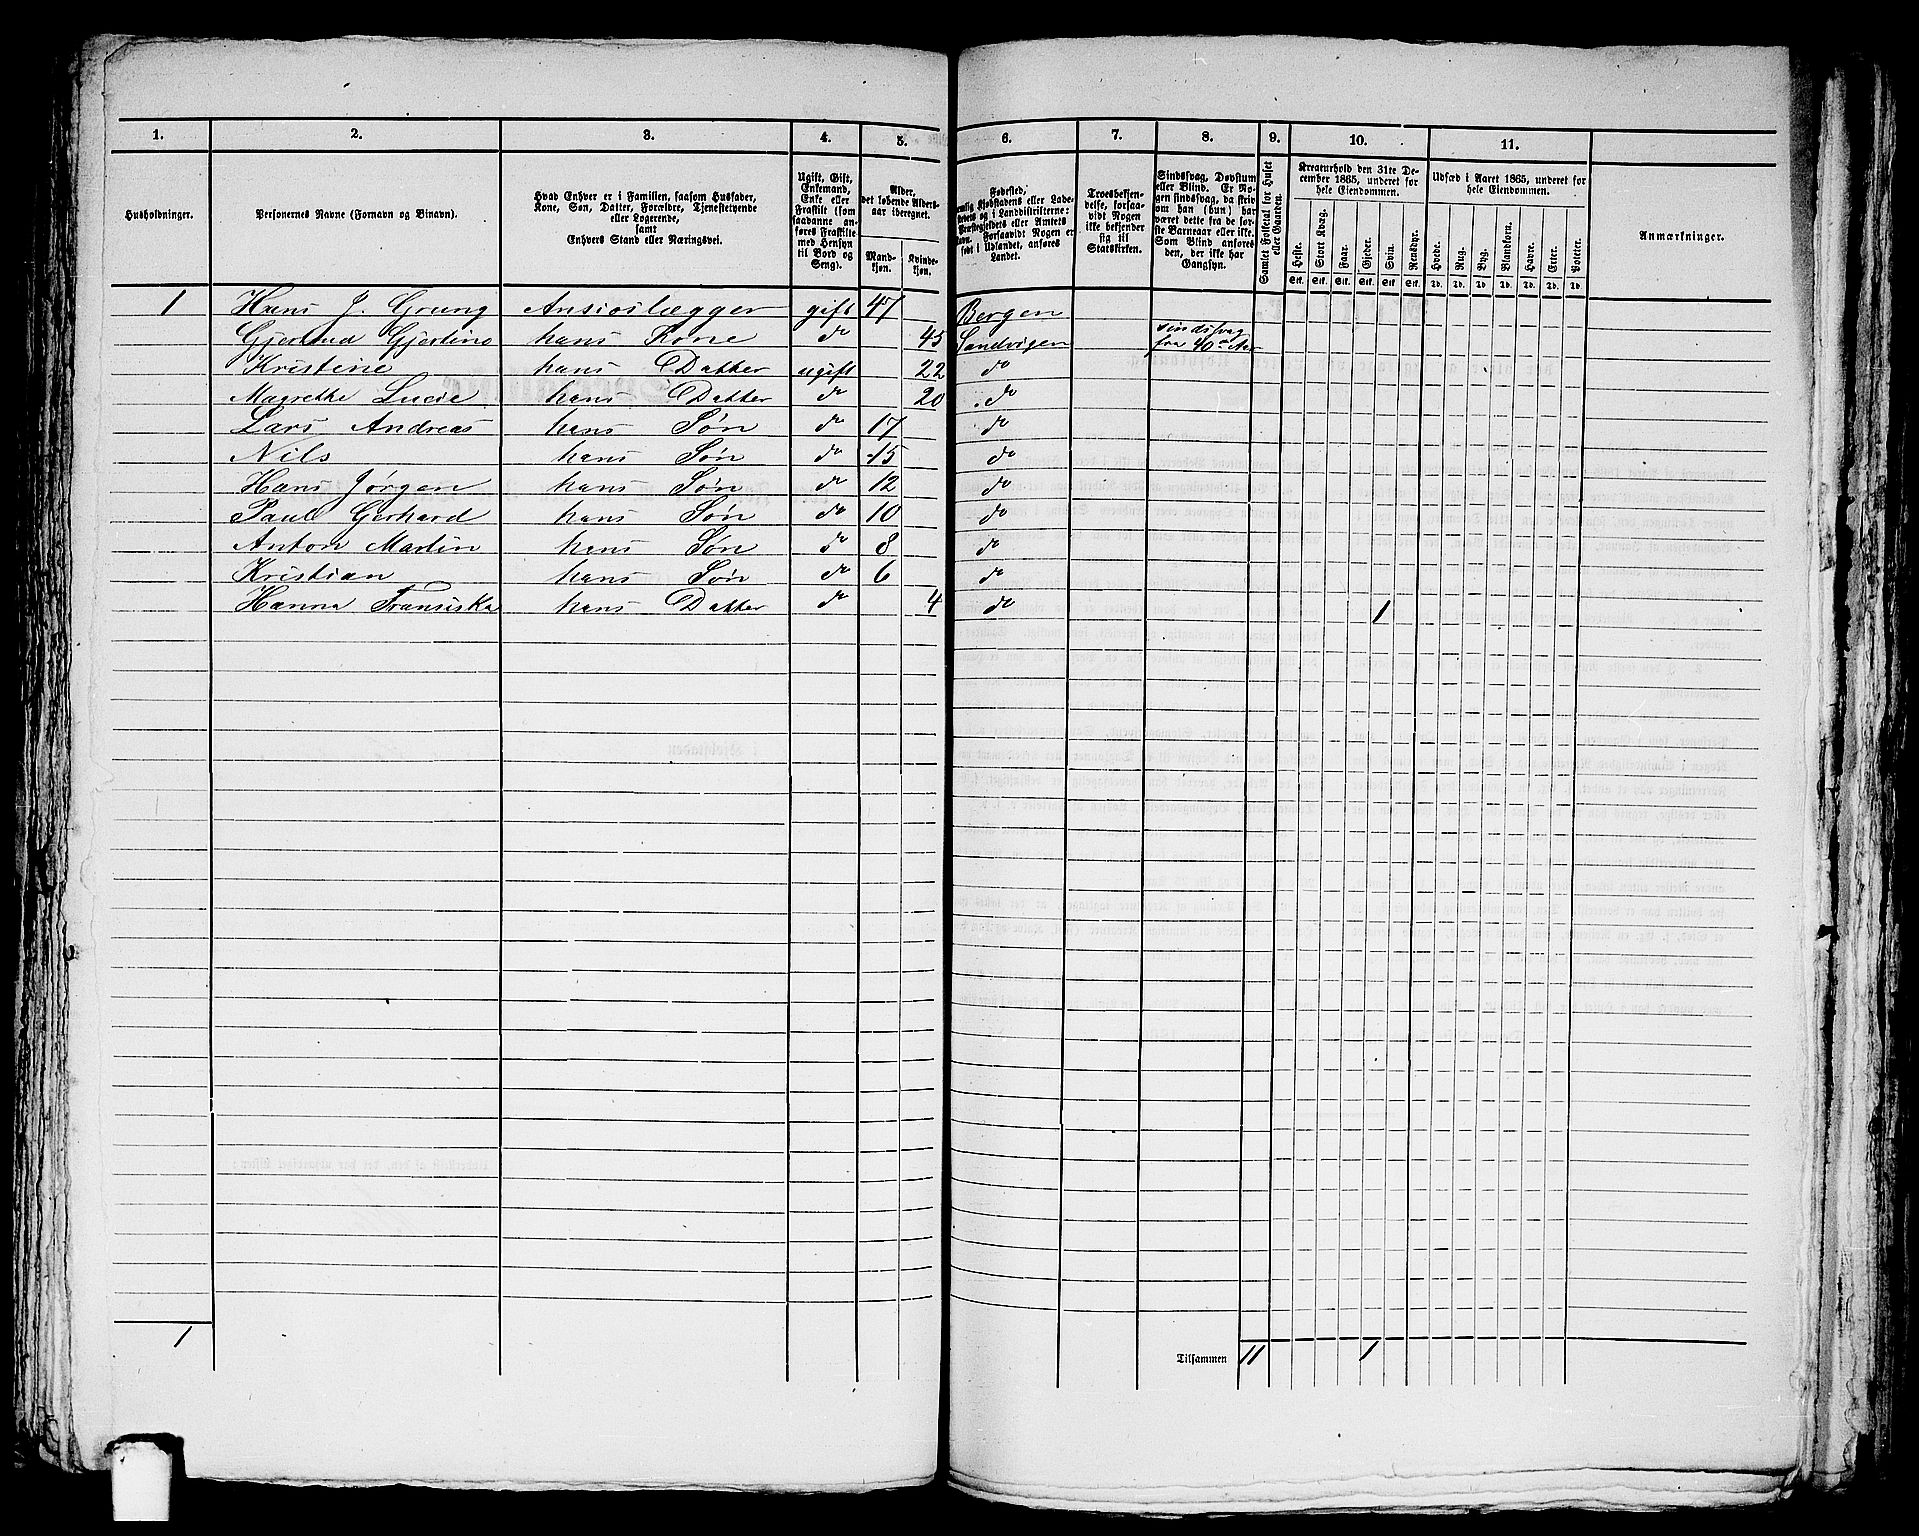 1. 2. 3. 4. 5. 6. 7. 8. 9. 10. 11.
Husholdninger.
Personernes Navne (Fornavn og Binavn).
Hvad Enhver er i Familien, saasom Husfader,
Kone, Søn, Datter, Forældre, Tjenestetyende
eller Logerende,
samt
Enhvers Stand eller Næringsvei.
Ugift, Gift,
Enkemand,
Enke eller
Fraskilt (som
saadanne an-
føres Fraskilte
med Hensyn
til Bord og
Seng).
Alder,
det løbende Alders-
aar iberegnet.
Mand-
kjøn.
Kvinde-
kjøn.
Fødested,
Landet.
Troesbekjen-
delse, forsaa-
vidt Nogen
ikke bekjender
sig til
Statskirken.
Sindssvag, Døvstum
eller Blind. Er No-
gen sindssvag, da skriv
om han (hun) har
været dette fra de før-
ste Barneaar eller ikke.
Som Blind anføres
den, der ikke har
Gangsyn.
Samlet Folketal for Huset
eller Gaarden.
Kreaturhold den 31te De-
cember 1865, underet for
hele Eiendommen.
Heste. Stort Kvæg. Faar. Gjeder. Svin. Rensdyr.
Stk. Stk. Stk. Stk. Stk. Stk.
Udsæd i Aaret 1865, underet for
hele Eiendommen.
Hvede. Rug. Byg. Blandkorn. Havre. Erter. Poteter.
Td. Td. Td. Td. Td. Td. Td.
Anmærkninger.
1 Hans J. Grung gift 47 Bergen
Gjertrud Gjertine hans Kone do 45 Sandvigen sindssvag fra 40
Kristine hans Datter ugift 22 do
Magrethe Lucie hans Datter do 20 do
Lars Andreas hans Søn do 17 do
Nils hans Søn do 15 do
Hans Jørgen hans Søn do 12 do
Paul Gerhard hans Søn do 10 do
Anton Martin hans Søn do 8 do
Kristian hans Søn do 6 do
Hanna Fransiska hans Datter do 4 do 1
1 Tilsammen 11 1